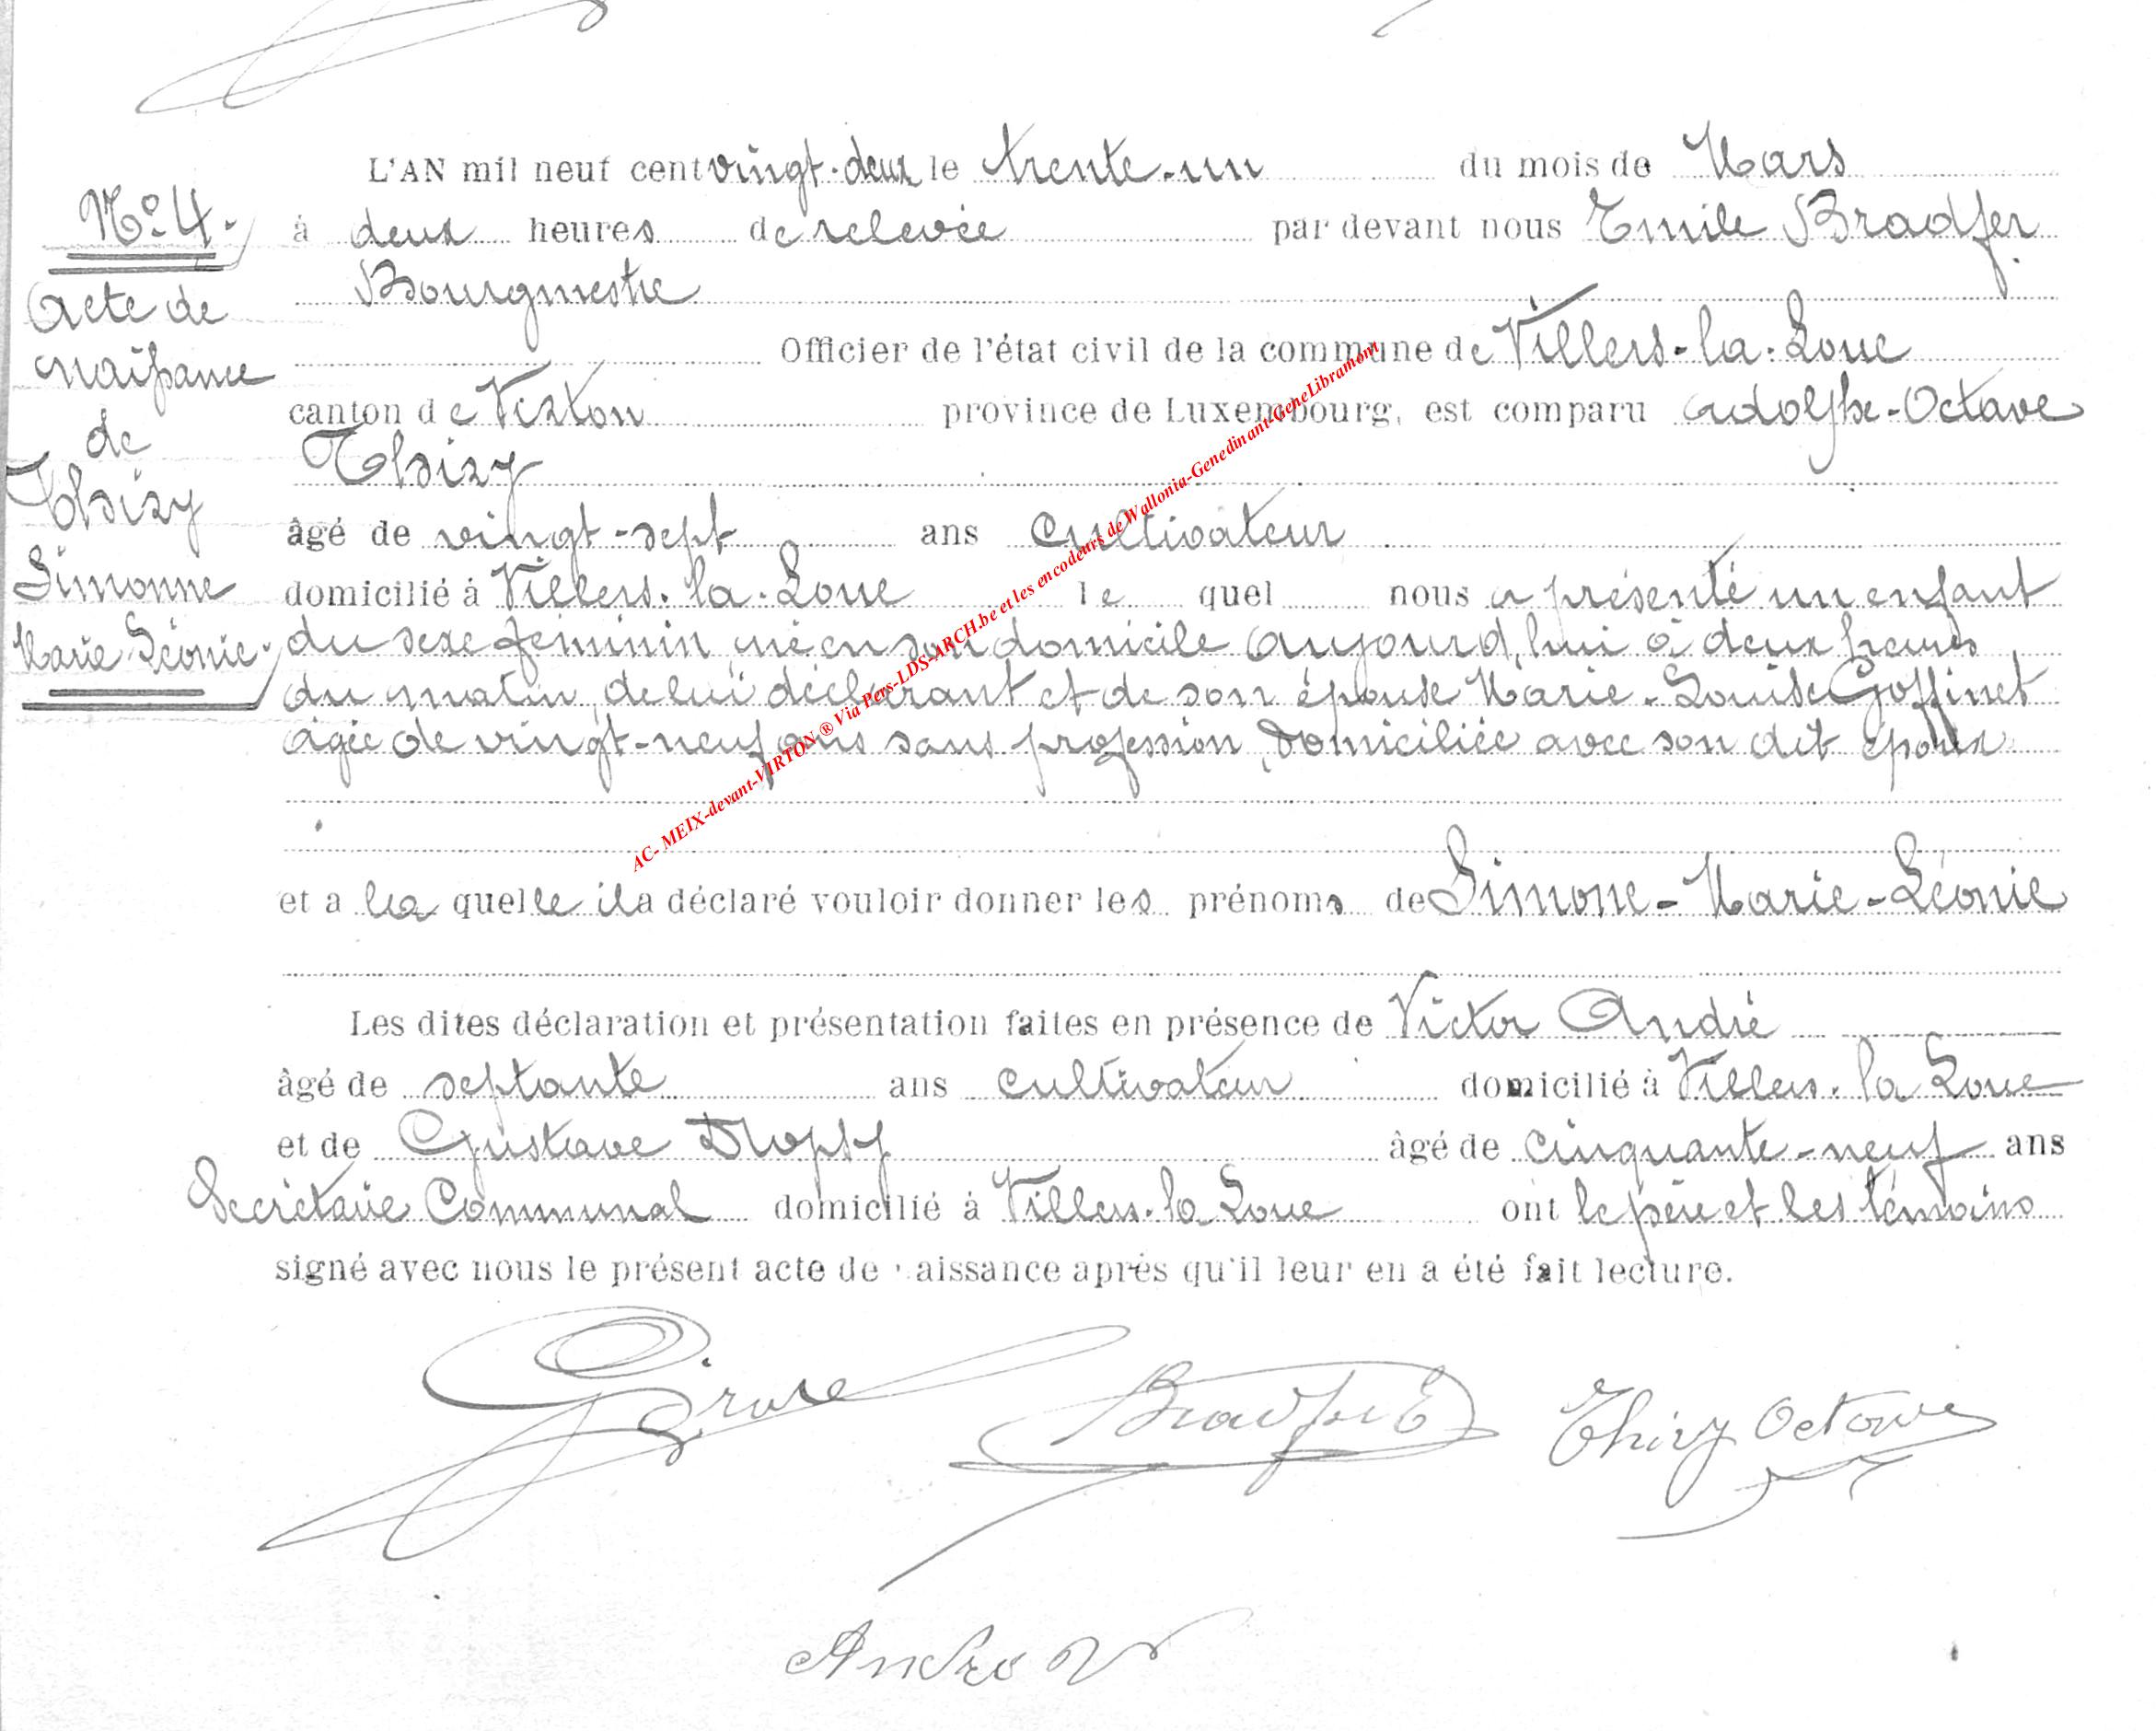 L'AN mil neuf cent vingt-deux le trente-un du mois de Mars
à deux heures de relevée par devant nous Emile Bradfer
Bourgmestre
Officier de l'état civil de la commune de Villers-la-Loue
canton de Virton province de Luxembourg, est comparu Adolphe-Octave
Thiry
âgé de vingt-sept ans cultivateur
domicilié à Villers-la-Loue le quel nous a présenté un enfant
du sexe féminin, né en son domicile aujourd'hui à deux heures
du matin, de lui déclarant et de son épouse Marie-Louise Goffinet
agée de vingt-neuf ans sans profession, domiciliée avec son dit époux
et a la quelle il a déclaré vouloir donner les prénoms de Simone-Marie-Léonie
Les dites déclaration et présentation faites en présence de Victor André
âgé de septante ans cultivateur domicilié à Villers-la Loue
et de Gustave âgé de cinquante-neuf ans
Secrétaire Communal domicilié à Villers-la Loue ont le père et les témoins
signé avec nous le présent acte de naissance après qu'il leur en a été fait lecture.
No 4.
Acte de
naissance
de
Thiry
Simonne
Marie Léonie
Bradfer E
Thiry Octave
André V
AC- MEIX-devant-VIRTON ® Via Pers-LDS-ARCH.be et les encodeurs de Wallonia-Genedinant-GeneLibramont